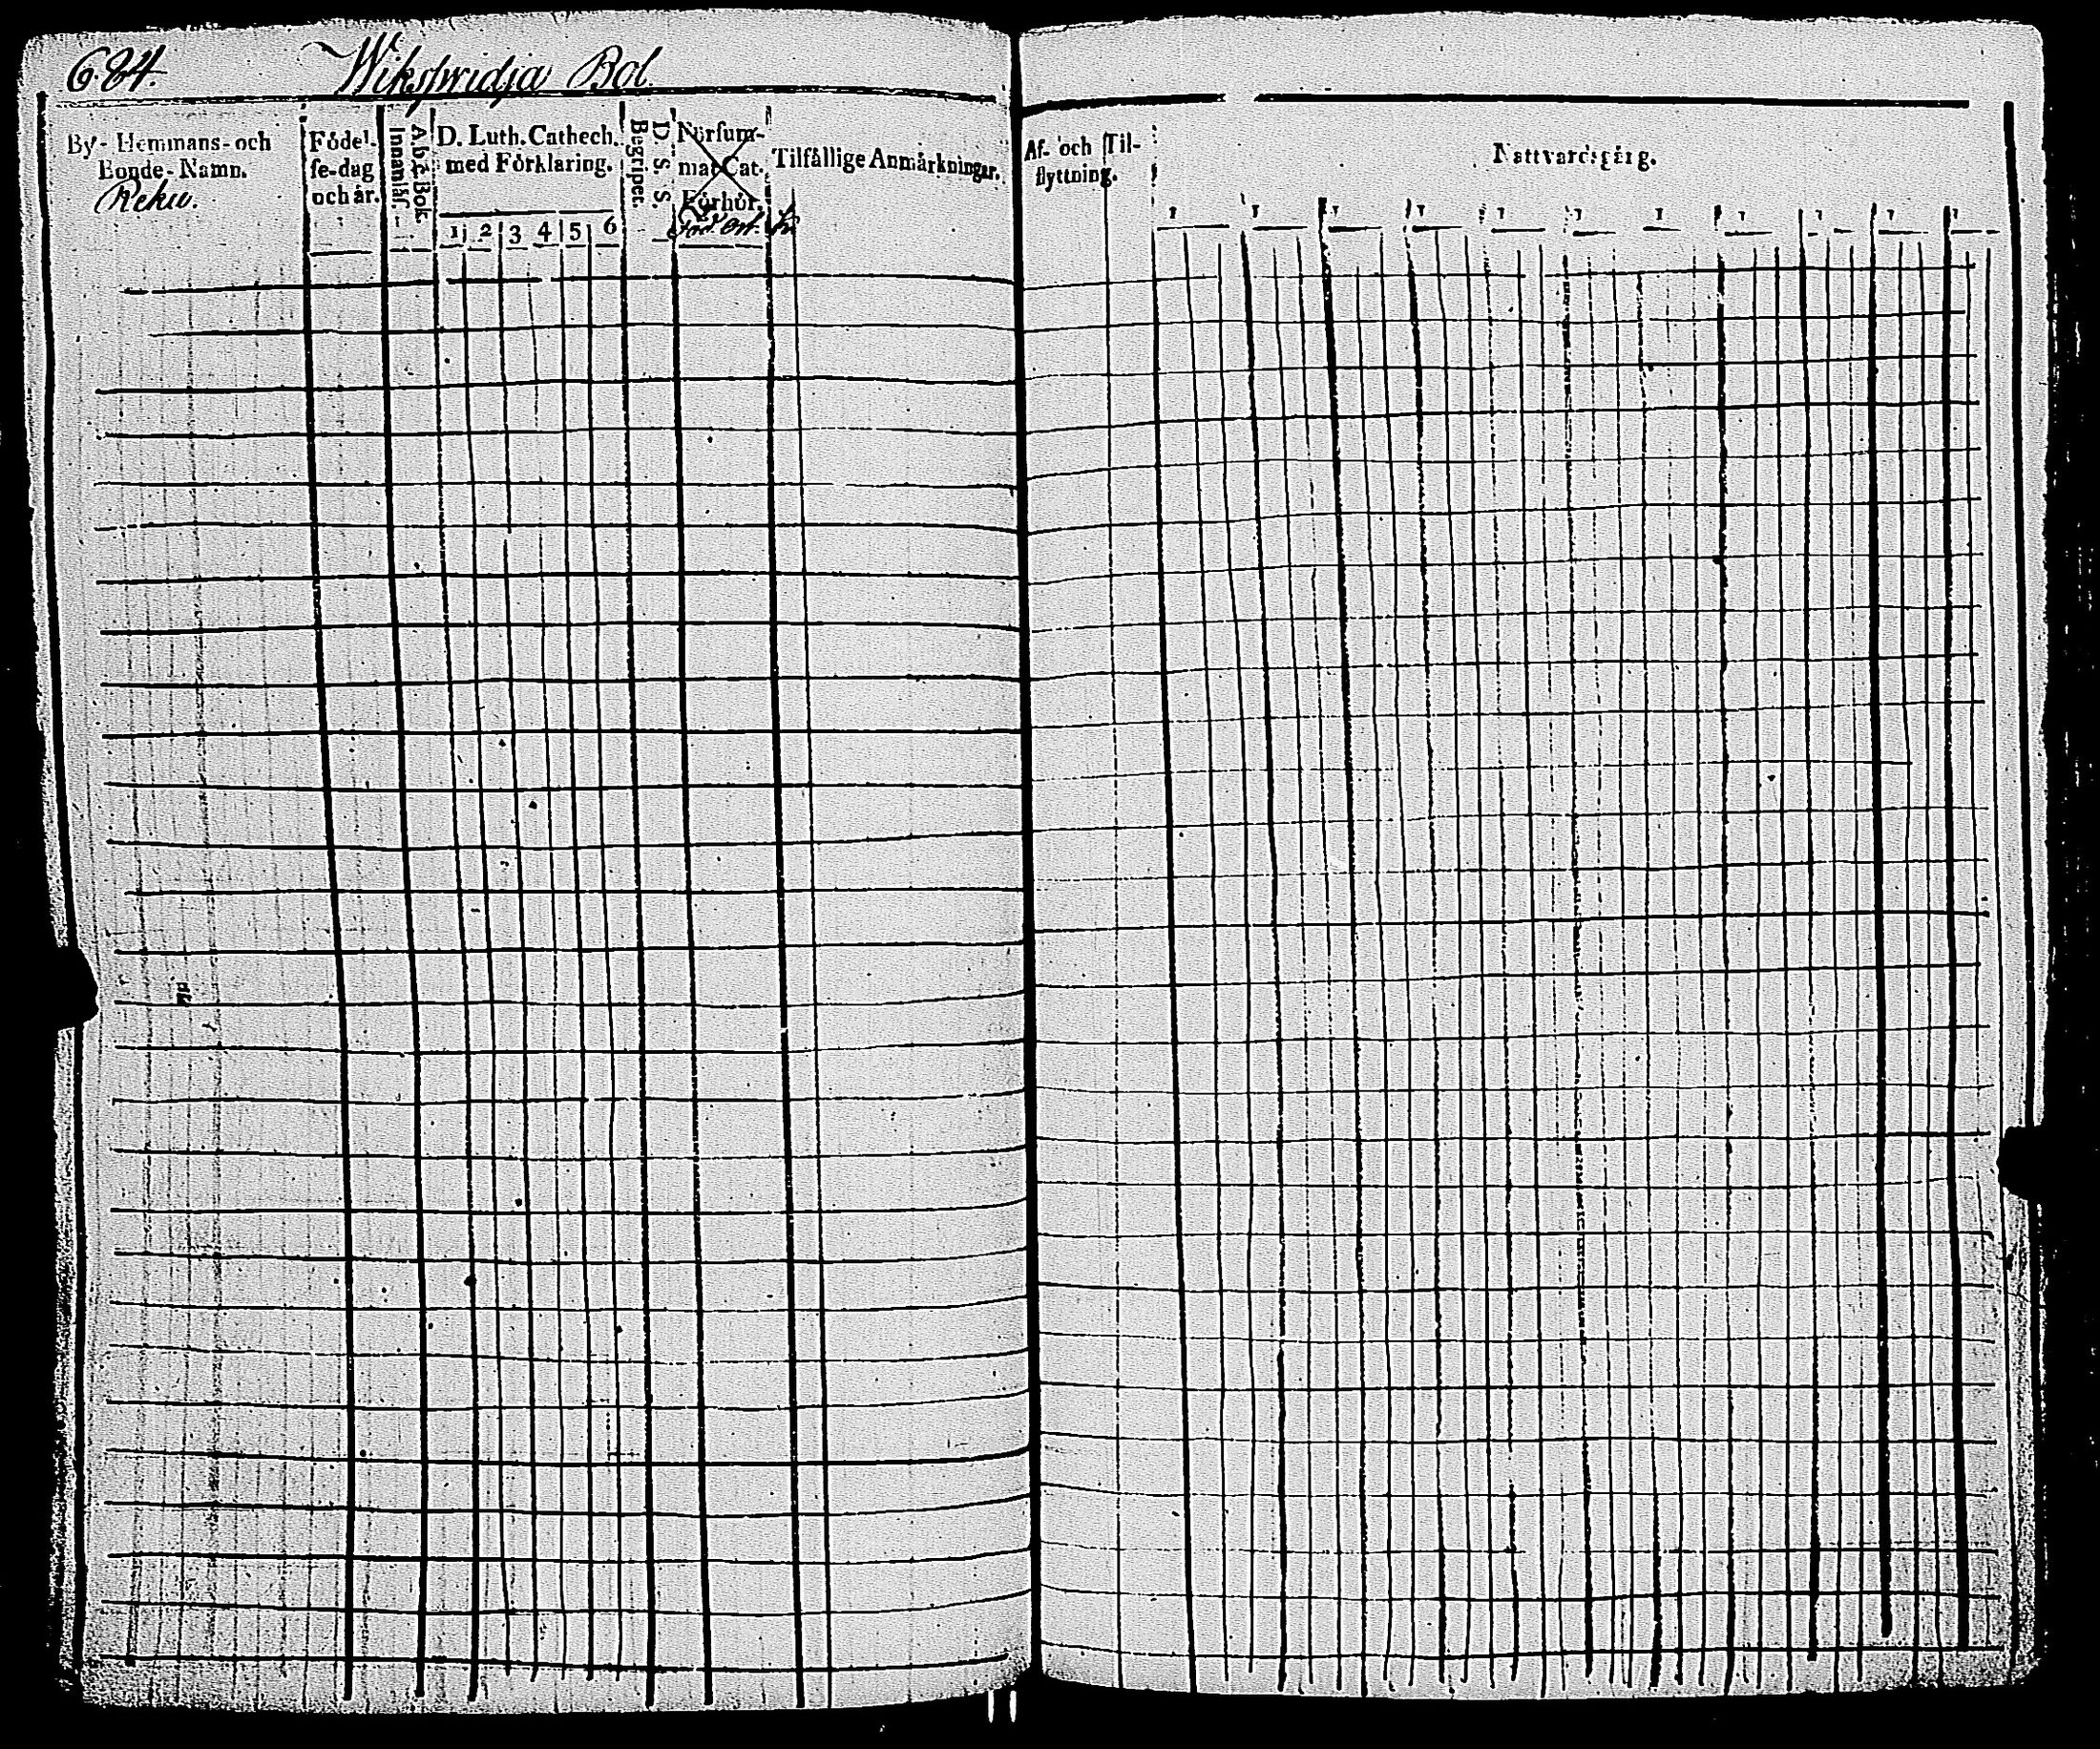 684. Wiksfwidja Bol
By- Hemmans- och
Bonde- Namn.
Reku.
Födel-
se-dag
och år.
A.b.c. Bok.
Innanläs.
D. Luth. Cathech.
med Förklaring.
1 2 3 4 5 6
D. S. S.
Begriper.
Försum-
mat Cat.
Förhör.
Föd. ort.
Tilfällige Anmärkningar.
Af- och Til-
flyttning.
Nattvardsgång.
1 1 1 1 1 1 1 1 1 1 1